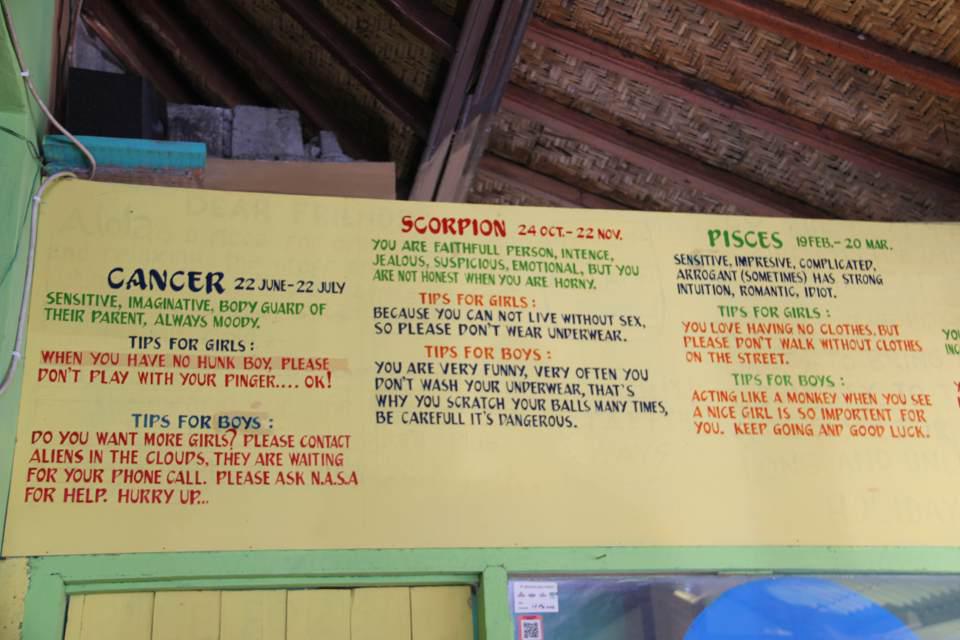 CANCER 22 JUNE-22 JULY
SENSITIVE, IMAGINATIVE, BODY GUARD OF
THEIR PARENT, ALWAYS MOODY.
TIPS FOR GIRLS :
WHEN YOU HAVE NO HUNK BOY, PLEASE
DON'T PLAY WITH YOUR PINGER.... OK!
TIPS FOR BOYS :
DO YOU WANT MORE GIRLS? PLEASE CONTACT
ALIENS IN THE CLOUDS, THEY ARE WAITING
FOR YOUR PHONE CALL. PLEASE ASK N.A.S.A
FOR HELP. HURRY UP...
SCORPION 24 OCT.- 22 NOV.
YOU ARE FAITHFULL PERSON, INTENCE,
JEALOUS, SUSPICIOUS, EMOTIONAL, BUT YOU
ARE NOT HONEST WHEN YOU ARE HORNY.
TIPS FOR GIRLS :
BECAUSE YOU CAN NOT LIVE WITHOUT SEX,
SO PLEASE DON'T WEAR UNDERWEAR.
TIPS FOR BOYS :
YOU ARE VERY FUNNY, VERY OFTEN YOU
DON'T WASH YOUR UNDERWEAR, THAT'S
WHY YOU SCRATCH YOUR BALLS MANY TIMES,
BE CAREFULL IT'S DANGEROUS.
PISCES 19 FEB.- 20 MAR.
SENSITIVE, IMPRESIVE, COMPLICATED,
ARROGANT (SOMETIMES) HAS STRONG
INTUITION, ROMANTIC, IDIOT.
TIPS FOR GIRLS :
YOU LOVE HAVING NO CLOTHES, BUT
PLEASE DON'T WALK WITHOUT CLOTHES
ON THE STREET.
TIPS FOR BOYS :
ACTING LIKE A MONKEY WHEN YOU SEE
A NICE GIRL IS SO IMPORTENT FOR
YOU. KEEP GOING AND GOOD LUCK.